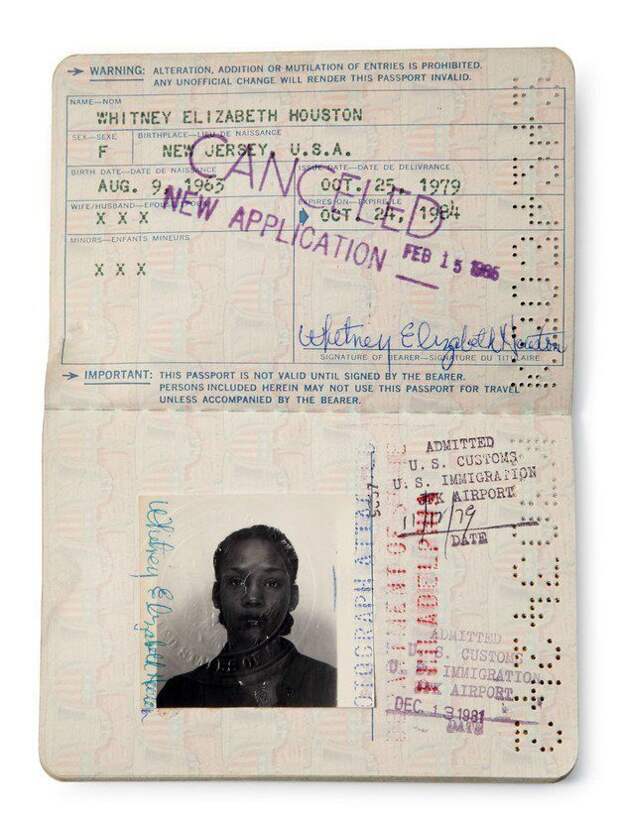 WARNING: ALTERATION, ADDITION OR MUTILATION OF ENTRIES IS PROHIBITED.
ANY UNOFFICIAL CHANGE WILL RENDER THIS PASSPORT INVALID.
NAME—NOM
WHITNEY ELIZABETH HOUSTON
SEX—SEXE BIRTHPLACE—LIEU DE NAISSANCE
F NEW JERSEY, U.S.A.
BIRTH DATE—DATE DE NAISSANCE ISSUE DATE—DATE DE DELIVRANCE
AUG. 9, 1963 OCT. 25, 1979
WIFE/HUSBAND— EXPIRES ON—EXPIRE LE
X X X OCT. 24, 1984
CANCELED
NEW APPLICATION FEB 15
MINORS—ENFANTS MINEURS
X X X
Whitney Elizabeth Houston
SIGNATURE OF BEARER—SIGNATURE DU TITULAIRE
IMPORTANT: THIS PASSPORT IS NOT VALID UNTIL SIGNED BY THE BEARER.
PERSONS INCLUDED HEREIN MAY NOT USE THIS PASSPORT FOR TRAVEL
UNLESS ACCOMPANIED BY THE BEARER.
Whitney Elizabeth Houston
PHOTOGRAPH
PHILADELPHIA
ADMITTED
U. S. CUSTOMS
U. S. IMMIGRATION
JFK AIRPORT
DATE
ADMITTED
U. S. CUSTOMS
U. S. IMMIGRATION
JFK AIRPORT
DEC 13 1981
DATE